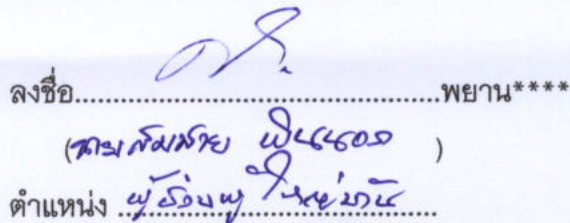 ลงชื่อ..........พยาน****
(นายสมชาย ปิ่นนอก )
ตำแหน่ง ผู้ช่วยผู้ใหญ่บ้าน